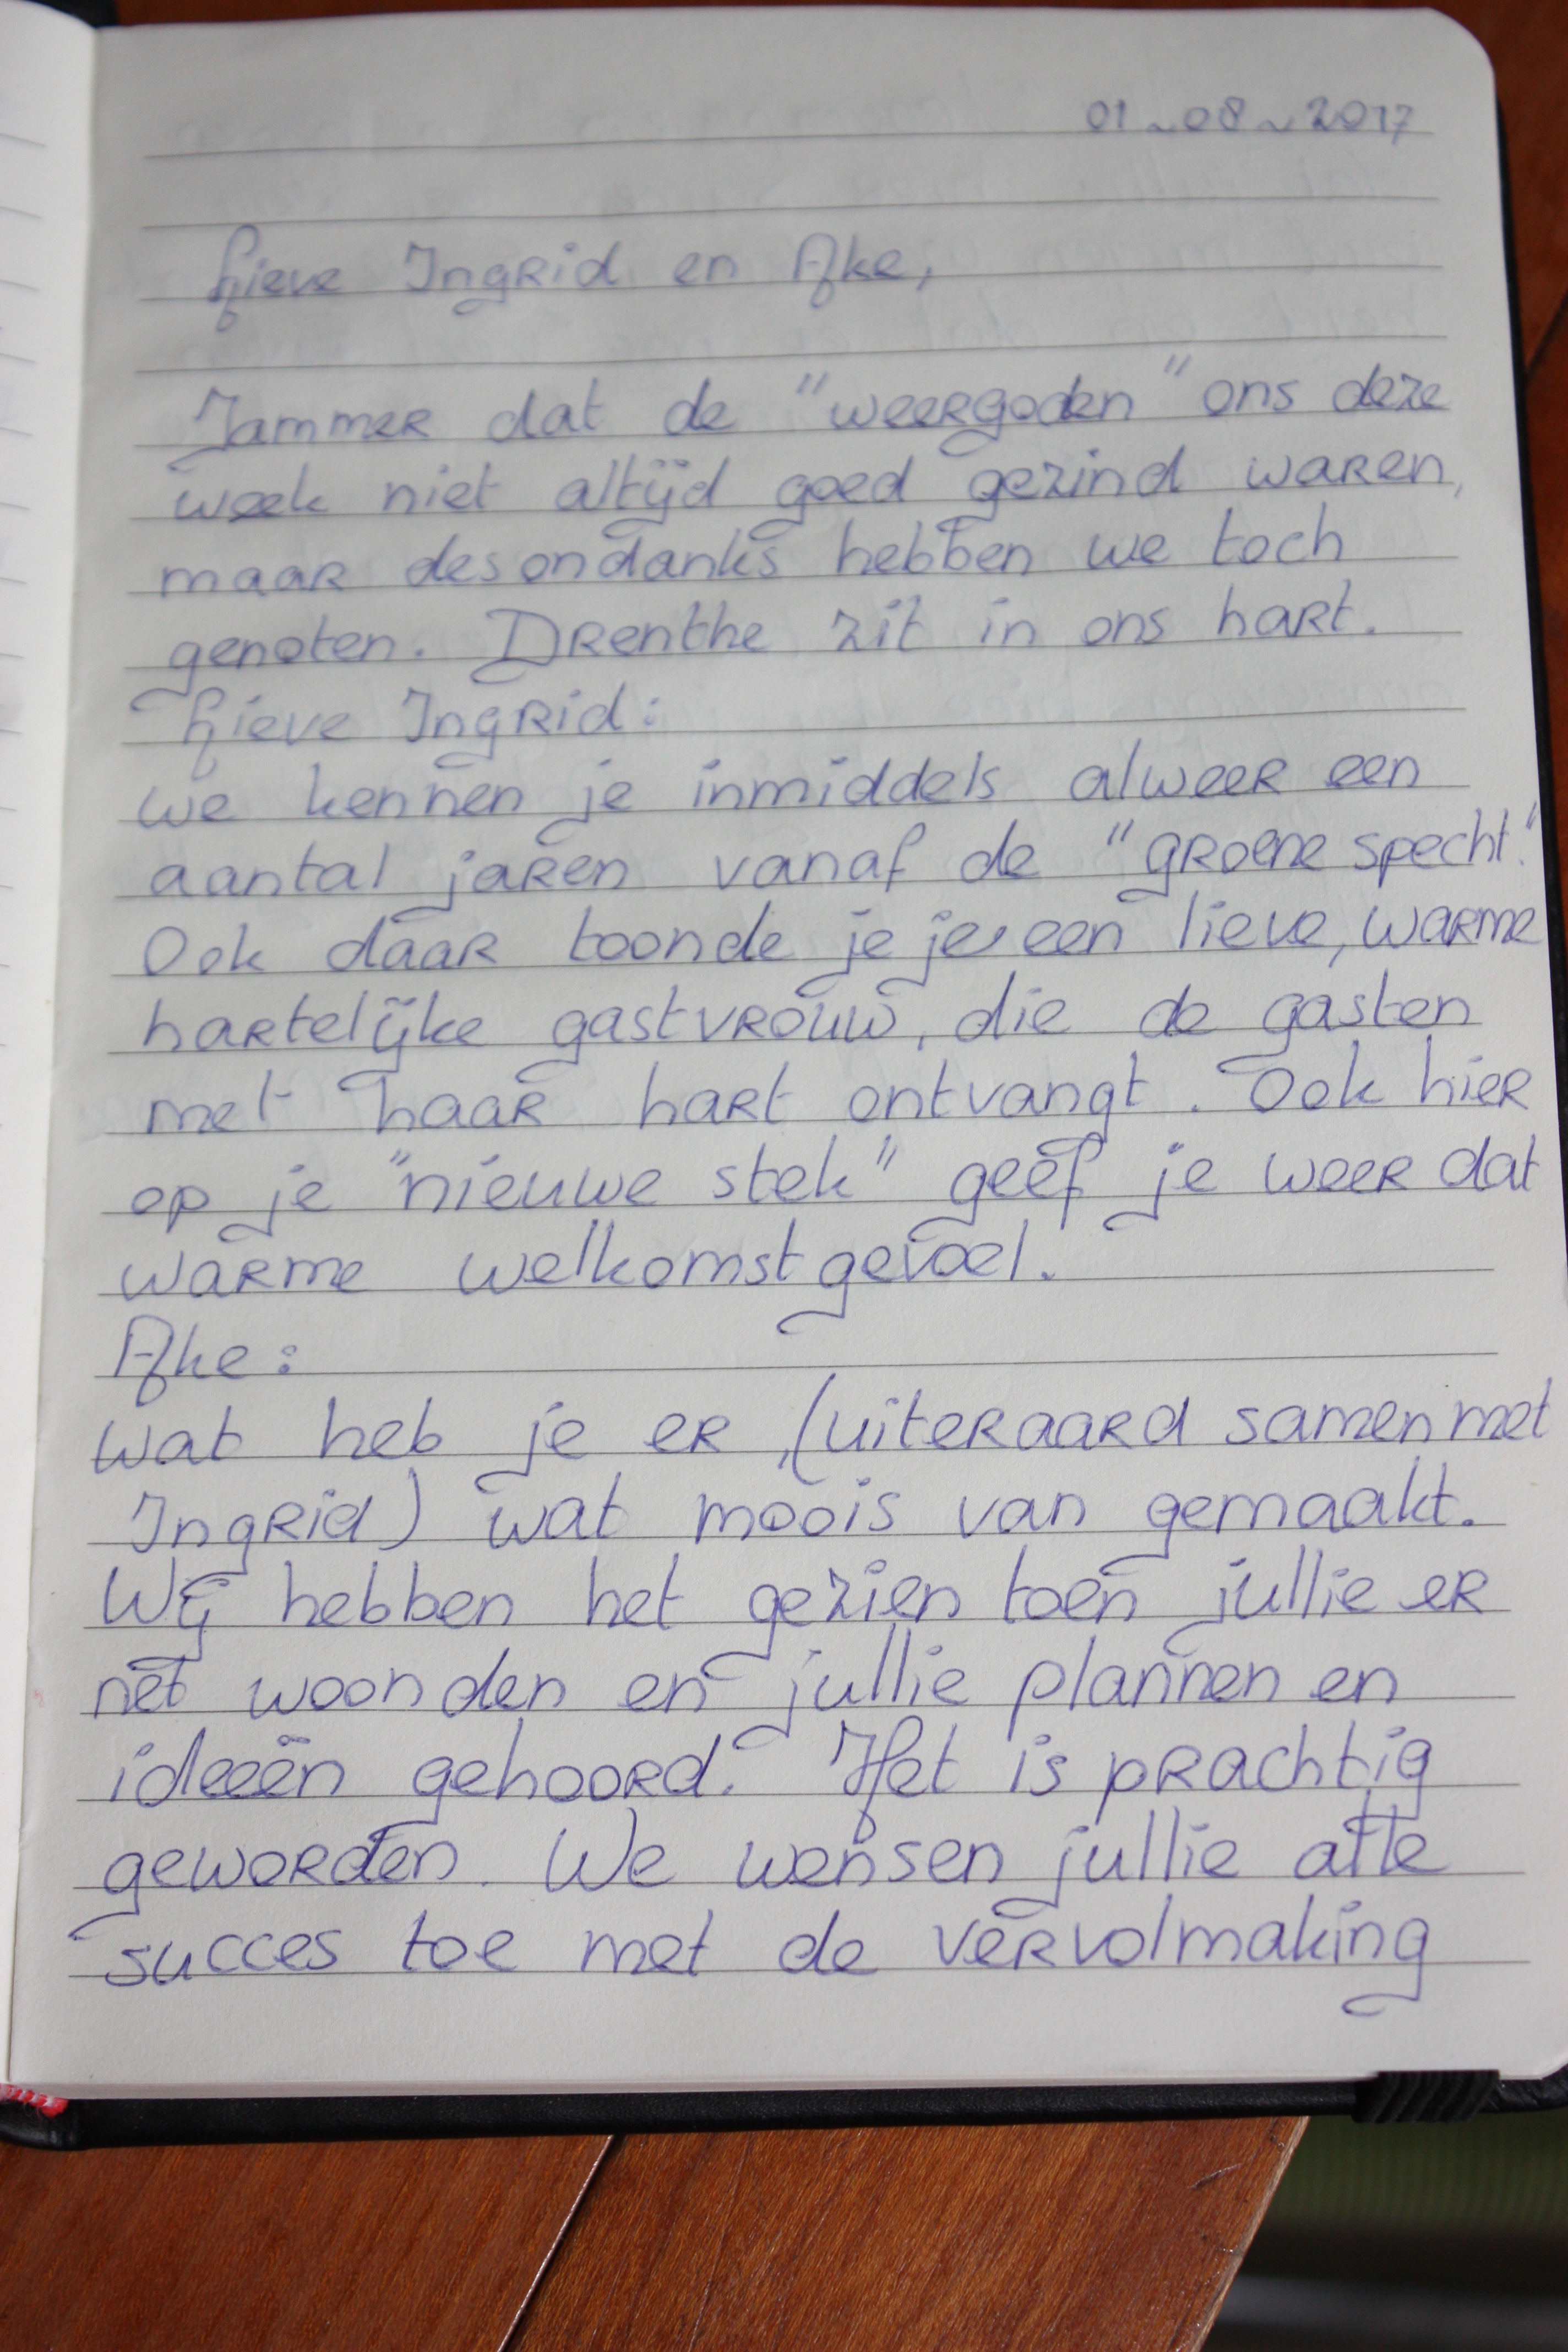 01~08~2017
Lieve Ingrid en Afke,
Jammer dat de "weergoden" ons deze
week niet altijd goed gezind waren,
maar desondanks hebben we toch
genoten. Drenthe zit in ons hart.
Lieve Ingrid:
we kennen je inmiddels alweer een
aantal jaren vanaf de "groene specht."
Ook daar toonde je je een lieve, warme
hartelijke gastvrouw, die de gasten
met haar hart ontvangt. Ook hier
op je "nieuwe stek" geef je weer dat
warme welkomstgevoel.
Afke:
wat heb je er, (uiteraard samen met
Ingrid) wat moois van gemaakt.
Wij hebben het gezien toen jullie er
net woonden en jullie plannen en
ideeën gehoord. Het is prachtig
geworden. We wensen jullie alle
succes toe met de vervolmaking